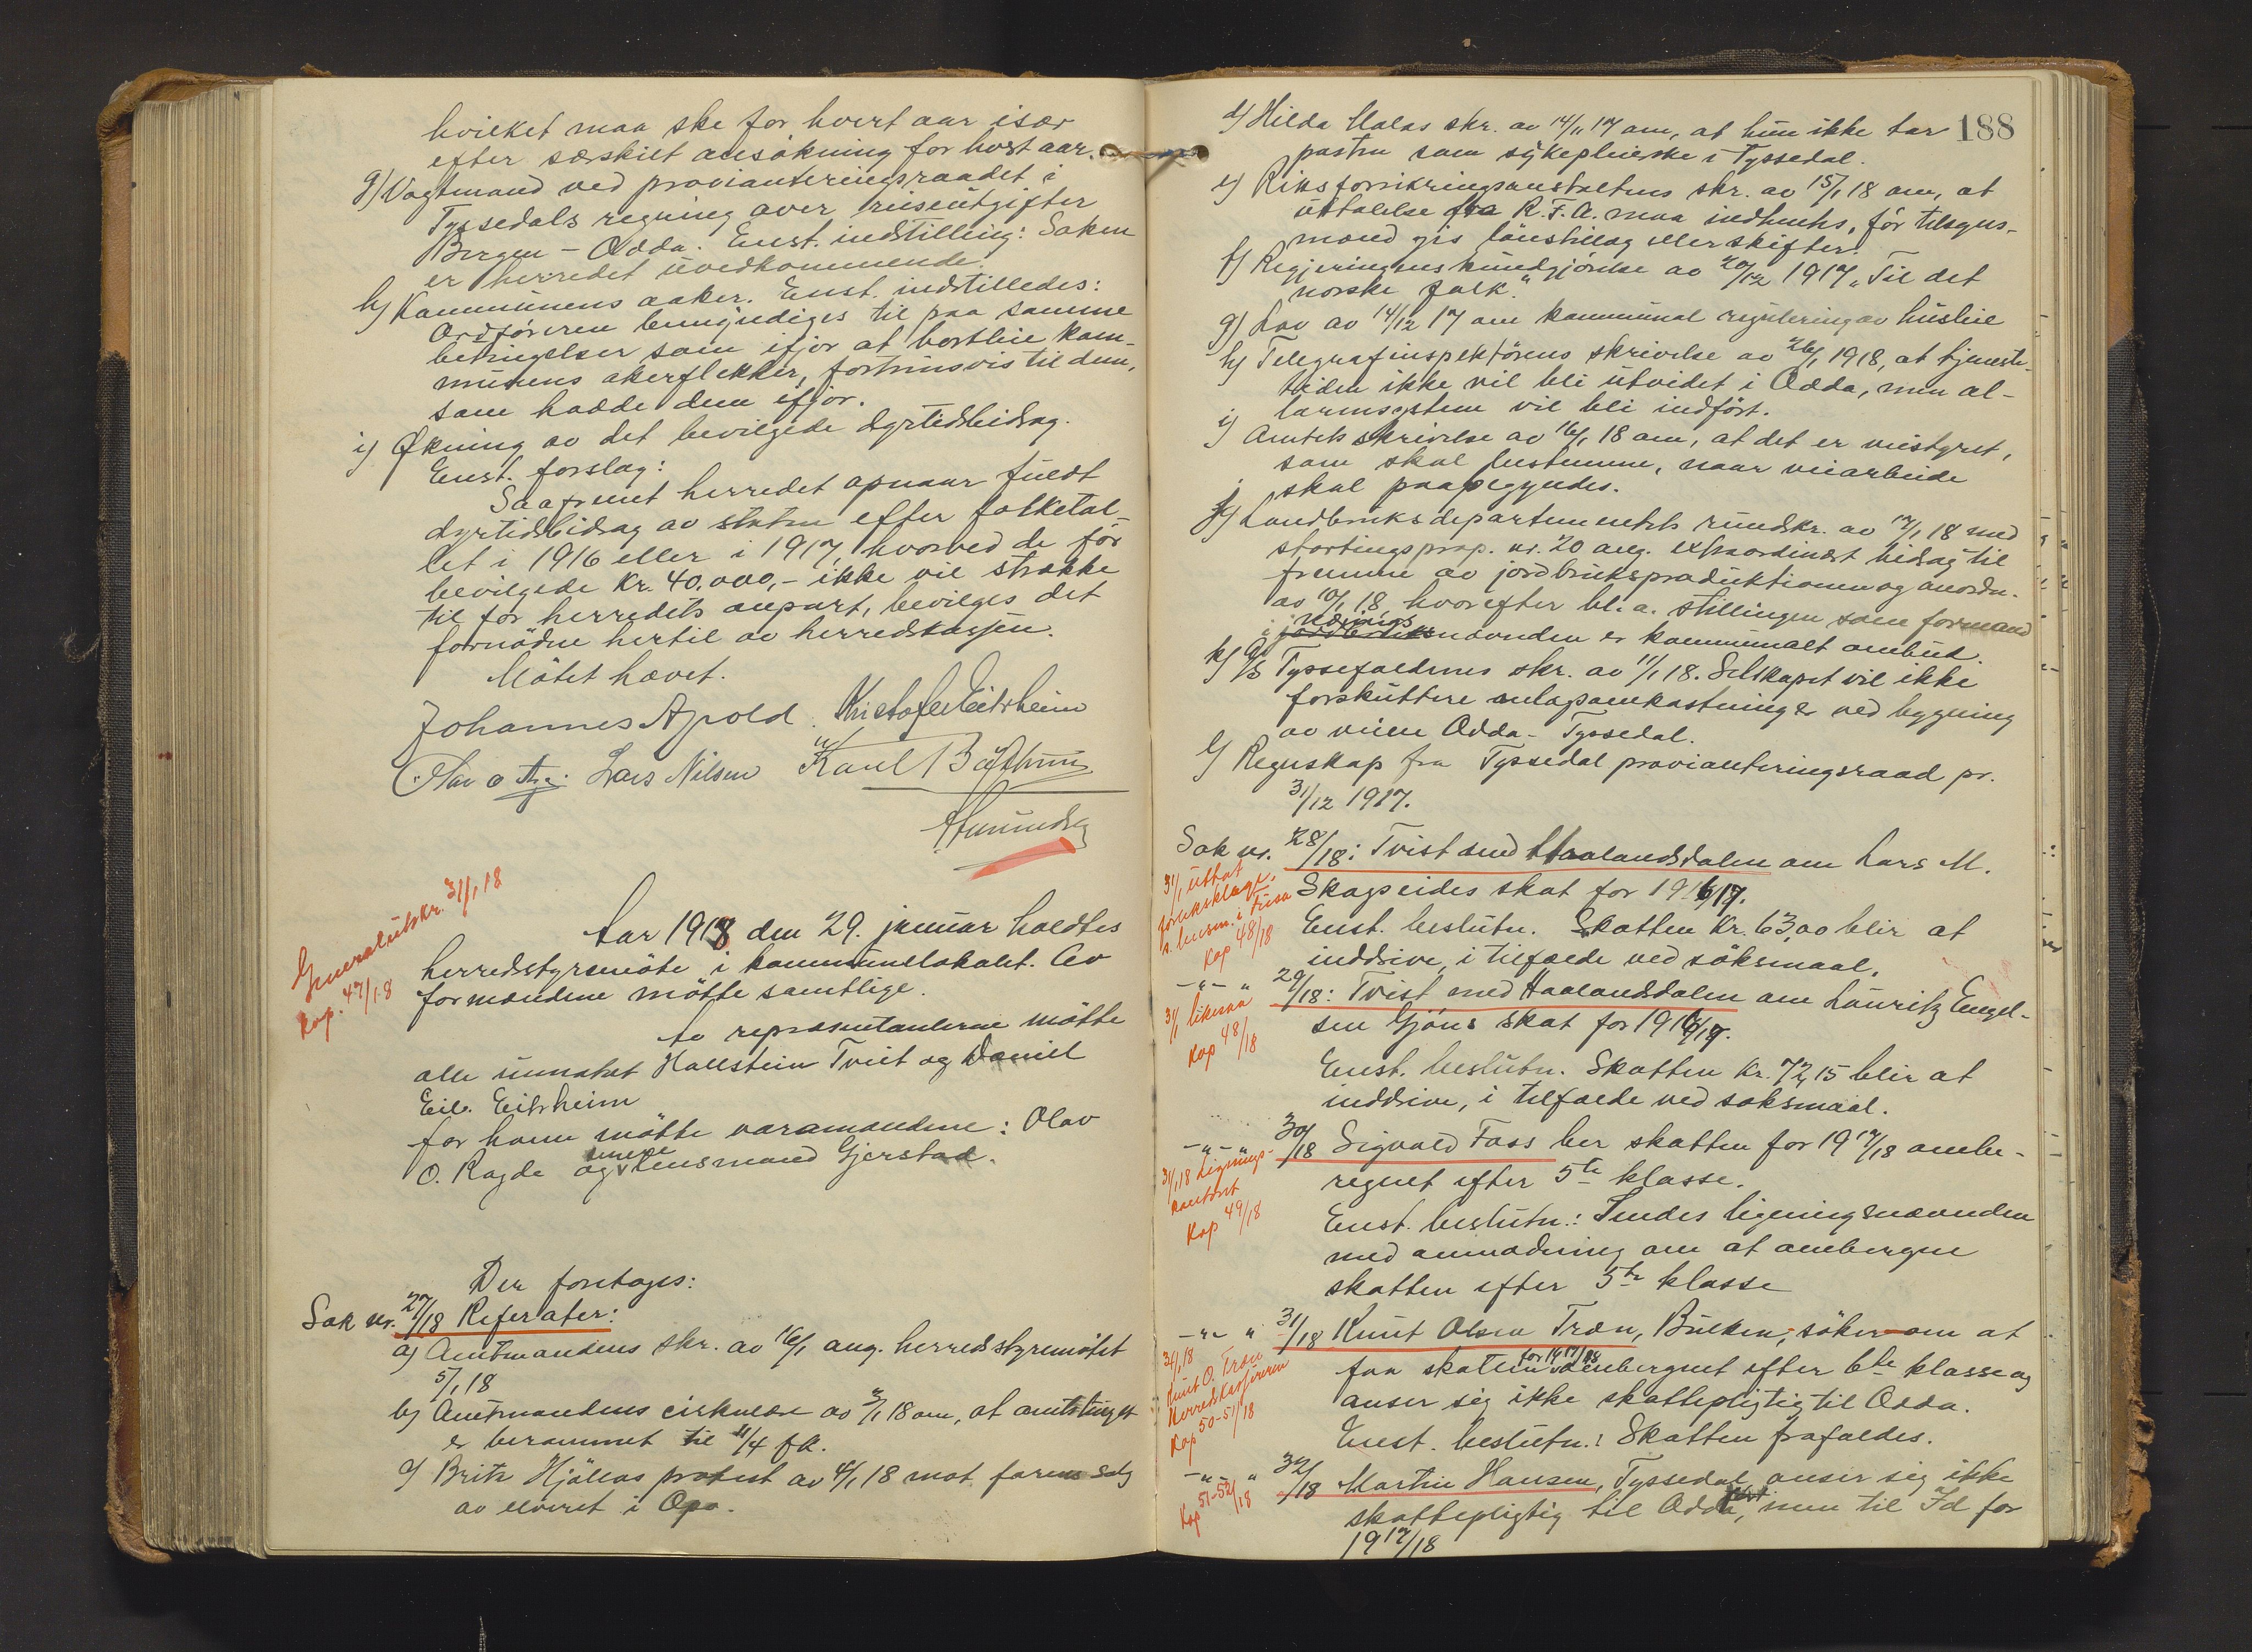 hvilket maa ske for hvert aar især
efter særskilt ansökning for hvert aar.
g) Vagtmand ved provianteringsraadet i
Tyssedals regning over reiseutgifter
Bergen - Odda. Enst. indstilling: Saken
er herredet uvedkommende.
h) Kommunens aaker. Enst. indstilledes:
Ordföreren bemyndiges til paa samme
betingelser som ifjor at bortleie kom-
munens akerflekker, fortrinsvis til dem,
som hadde dem ifjor.
i) Økning av det bevilgede dyrtidsbidrag.
Enst. forslag:
Saafremt herredet opnaar fuldt
dyrtidsbidrag av staten efter folketal-
let i 1916 eller i 1917, hvorved de för
bevilgede Kr. 40.000,- ikke vil strække
til for herredets anpart, bevilges det
fornödne hertil av herredskassen.
Mötet hævet.
Johannes Apold. Kristofer Eitrheim
Olav O. Aga. Lars Nilsen Karl Bösthun
Amundsen
Generalutskr. 31/1 18
Kop. 47/18
Aar 1918 den 29. januar holdtes
herredsstyremöte i kommunelokalet. Av
formændene mötte samtlige.
Av repræsentanterne mötte
alle undtat Hallstein Tveit og Daniel
Eil. Eitrheim
for ham mötte varamændene: Olav
O. Ragde og lensmand Gjerstad.
Der foretoges:
Sak nr. 27/18 Referater:
a) Amtmandens skr. av 16/1 ang. herredsstyremötet
5/1 18
b) Amtmandens cirkulære av 3/1 18 om, at amtstinget
er berammet til 11/4 fk.
c) Brita Hjöllos protest av 4/1 18 mot farens salg
av elveret i Opo.
188
d) Hilda Aalas skr. av 14/11 17 om, at hun ikke tar
posten som sykepleierske i Tyssedal.
e) Riksforsikringsanstaltens skr. av 15/1 18 om, at
uttalelse fra R.F.A. maa indhentes, för tilsyns-
mænd gis lönstillæg eller skifter.
f) Regjeringens kundgjörelse av 20/12 1917 „Til det
norske folk."
g) Lov av 14/12 17 om kommunal regulering av husleie
h) Telegrafinspektörens skrivelse av 26/1 1918, at tjeneste-
tiden ikke vil bli utvidet i Odda, men al-
larmsystem vil bli indfört.
i) Amtets skrivelse av 16/1 18 om, at det er veistyret,
som skal bestemme, naar veiarbeide
skal paabegyndes.
j) Landbruksdepartementets rundskr. av 17/1 18 med
stortingsprop. nr. 20 ang. extraordinært bidrag til
fremme av jordbruksproduktionen og anordn.
av 10/1 18, hvorefter bl. a. stillingen som formand
i nærings
jordbruksnævnden er kommunalt ombud.
k) A/S Tyssefaldenes skr. av 11/1 18. Selskapet vil ikke
forskuttere anlægsomkostninger ved bygning
av veien Odda - Tyssedal.
l) Regnskap fra Tyssedal provianteringsraad pr.
31/12 1917.
Sak nr. 28/18: Tvist med Haalandsdalen om Lars M.
Skogseides skat for 1916/17.
Enst. beslutn. Skatten Kr. 63,00 blir at
inddrive, i tilfælde ved söksmaal.
31/1 uttat
forliksklage
h. husm. i Fusa
Kop 48/18
-"- " 29/18: Tvist med Haalandsdalen om Lauritz Engel-
sen Gjöns skat for 1916/17.
Enst. beslutn. Skatten Kr. 72,15 blir at
inddrive, i tilfælde ved söksmaal.
31/1 likesaa
Kop 48/18
-"- " 30/18 Sigvald Foss ber skatten for 1917/18 ombe-
regnet efter 5te klasse.
Enst. beslutn.: Sendes ligningsnævnden
med anmodning om at omberegne
skatten efter 5te klasse
31/1 18 Lignings-
kontoret
Kop 49/18
-"- " 31/18 Knut Olsen Træn, Bulken, söker om at
faa skatten for 1917/18 omberegnet efter 6te klasse og
anser sig ikke skattepligtig til Odda.
Enst. beslutn.: Skatten frafaldes.
31/1 18
Knut O. Træn
Herredskassereren
Kop 50-51/18
-"- " 32/18 Martin Hansen, Tyssedal, anser sig ikke
skattepligtig til Odda, men til Id for
1917/18
Kop 51-52/18